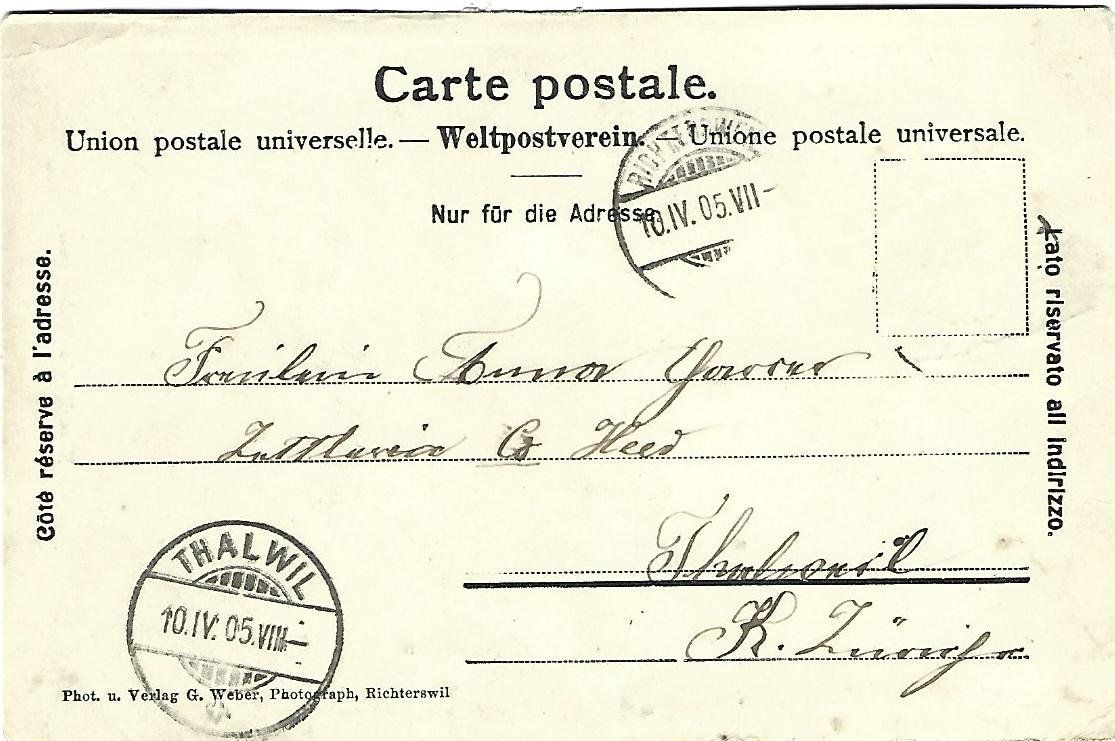 Carte postale.
Union postale universelle. — Weltpostverein. — Unione postale universale.
Nur für die Adresse.
RICHTERSWIL
10.IV.05.VII–
Côté réservé à l'adresse.
Lato riservato all indirizzo.
Fräulein Anna
Thalwil
K. Zürich
THALWIL
10.IV.05.VIII–
Phot. u. Verlag G. Weber, Photograph, Richterswil